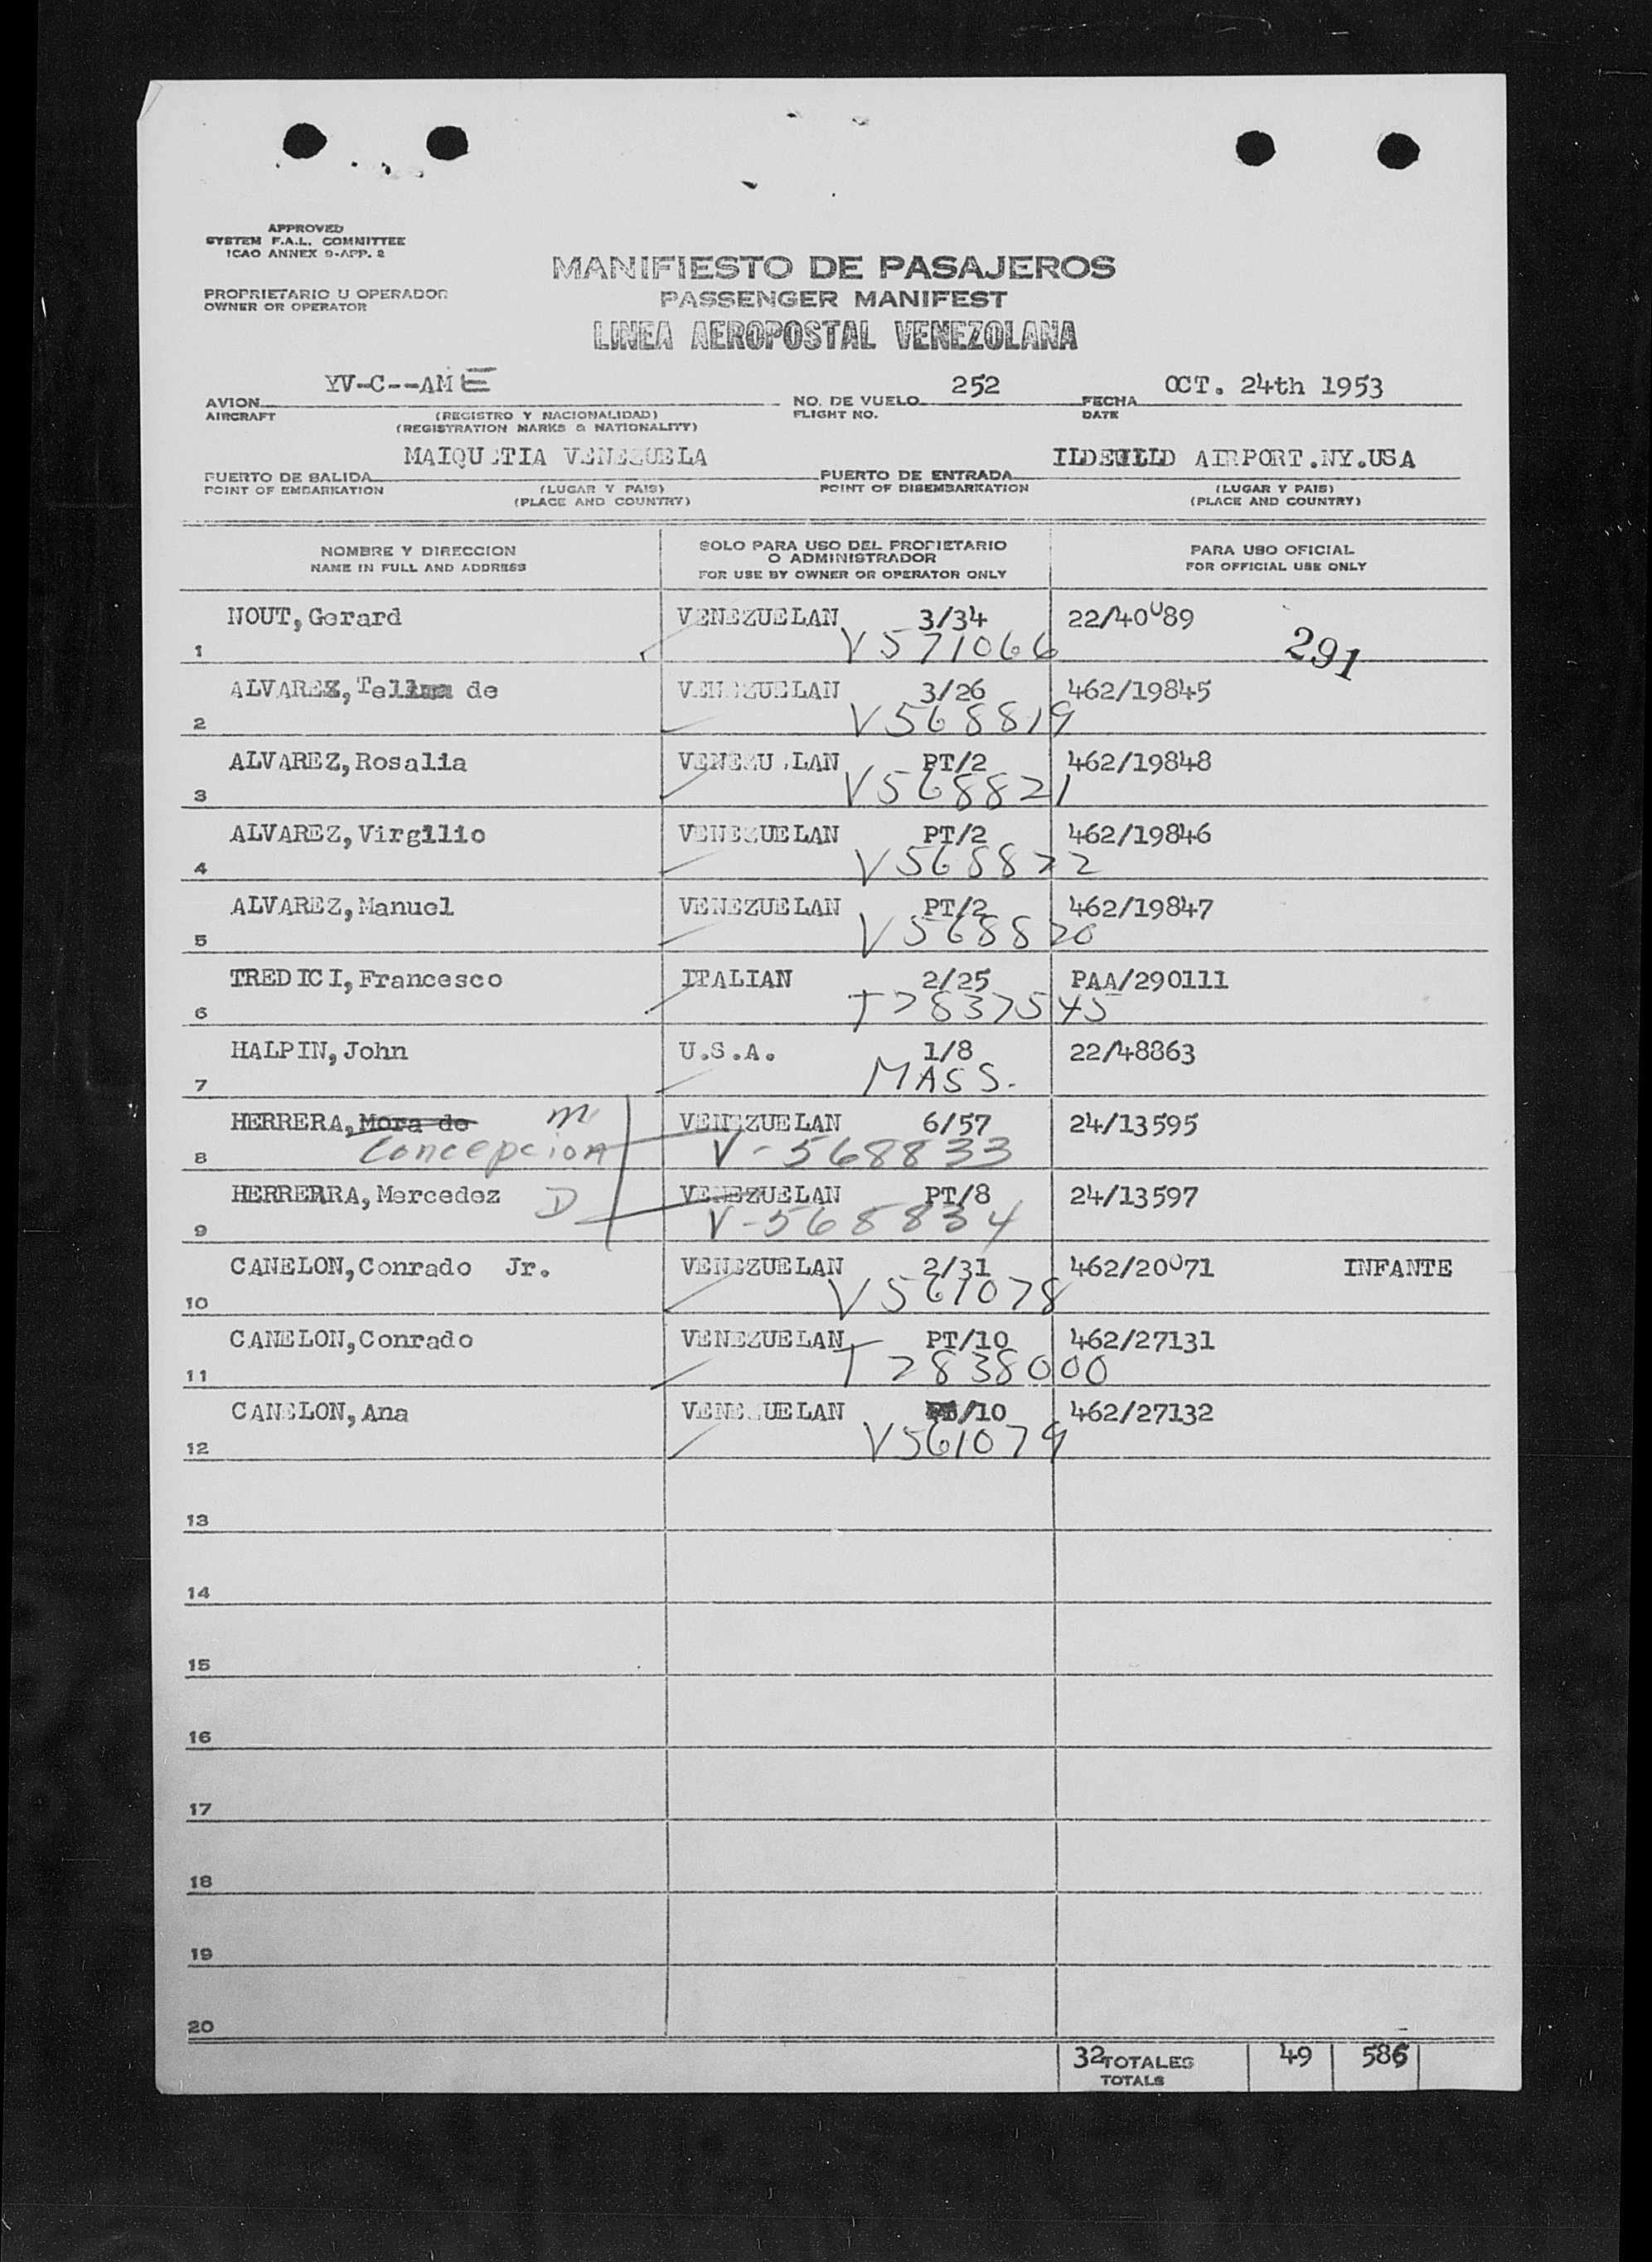 APPROVED
SYSTEM F.A.L. COMMITTEE
ICAO ANNEX 9-APP. 2
MANIFIESTO DE PASAJEROS
PROPRIETARIO U OPERADOR
OWNER OR OPERATOR
PASSENGER MANIFEST
LINEA AEROPOSTAL VENEZOLANA
YV-C--AME 252 OCT. 24th 1953
AVION NO. DE VUELO FECHA
AIRCRAFT (REGISTRO Y NACIONALIDAD) FLIGHT NO. DATE
(REGISTRATION MARKS & NATIONALITY)
MAIQUETIA VENEZUELA AIRPORT.NY.USA
PUERTO DE SALIDA PUERTO DE ENTRADA
POINT OF EMBARKATION (LUGAR Y PAIS) POINT OF DISEMBARKATION (LUGAR Y PAIS)
(PLACE AND COUNTRY) (PLACE AND COUNTRY)
NOMBRE Y DIRECCION SOLO PARA USO DEL PROPIETARIO PARA USO OFICIAL
NAME IN FULL AND ADDRESS O ADMINISTRADOR FOR OFFICIAL USE ONLY
FOR USE BY OWNER OR OPERATOR ONLY
NOUT, Gerard VENEZUELAN 3/34 22/40089
1 V571066 291
ALVAREZ, de VENEZUELAN 3/26 462/19845
2 V568819
ALVAREZ, Rosalia VENEZU.LAN PT/2 462/19848
3 V568821
ALVAREZ, Virgilio VENEZUELAN PT/2 462/19846
4 V568822
ALVAREZ, Manuel VENEZUELAN PT/2 462/19847
5 V568820
TREDICI, Francesco ITALIAN 2/25 PAA/290111
6 T2837545
HALPIN, John U.S.A. 1/8 22/48863
7 MASS.
HERRERA, Mora de M VENEZUELAN 6/57 24/13595
8 Concepcion V-568833
HERRERRA, Mercedez D VENEZUELAN PT/8 24/13597
9 V-568834
CANELON, Conrado Jr. VENEZUELAN 2/31 462/20071 INFANTE
10 V561078
CANELON, Conrado VENEZUELAN PT/10 462/27131
11 T2838000
CANELON, Ana VENEZUELAN /10 462/27132
12 V561079
13
14
15
16
17
18
19
20
32 TOTALES 49 586
TOTALS